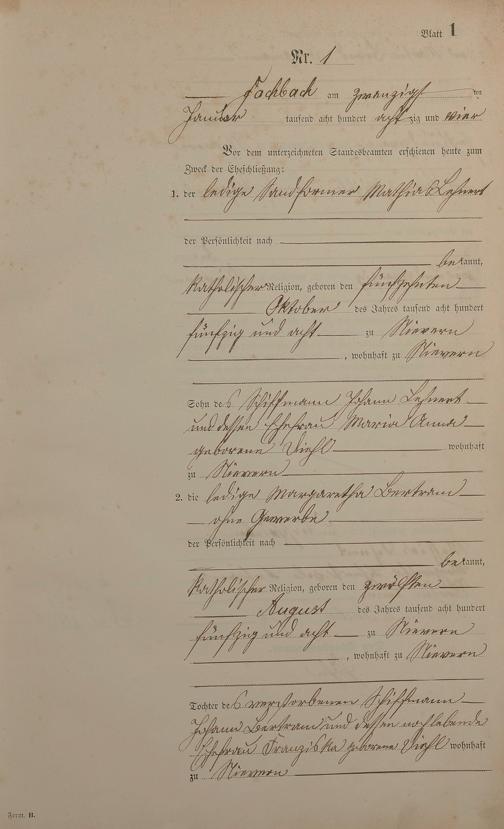 Blatt 1
Nr. 1
Fachbach am zwanzigsten
Januar tausend acht hundert achtzig und vier
Vor dem unterzeichneten Standesbeamten erschienen heute zum
Zweck der Eheschließung:
1. der ledige Sandformer Mathias Lehnert
der Persönlichkeit nach
bekannt,
katholischer Religion, geboren den fünfzehnten
Oktober des Jahres tausend acht hundert
fünfzig und acht zu Nievern
, wohnhaft zu Nievern
Sohn des Schiffmann Johann Lehnert
und dessen Ehefrau Maria Anna
geborene Diehl wohnhaft
zu Nievern
2. die ledige Margaretha Bertram
ohne Gewerbe
der Persönlichkeit nach
bekannt,
katholischer Religion, geboren den zwölften
August des Jahres tausend acht hundert
fünfzig und acht zu Nievern
, wohnhaft zu Nievern
Tochter des verstorbenen Schiffmann
Johann Bertram und dessen nachlebende
Ehefrau Franziska geborene Diehl wohnhaft
zu Nievern
Form. B.